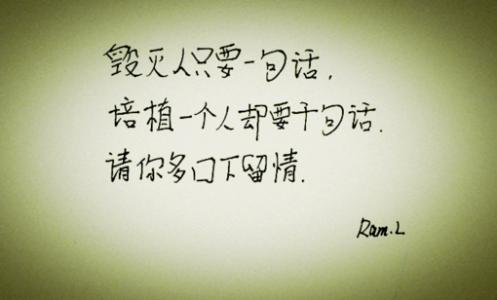 毁灭人只要一句话.
培植一个人却要千句话.
请你多口下留情.
Ram.L